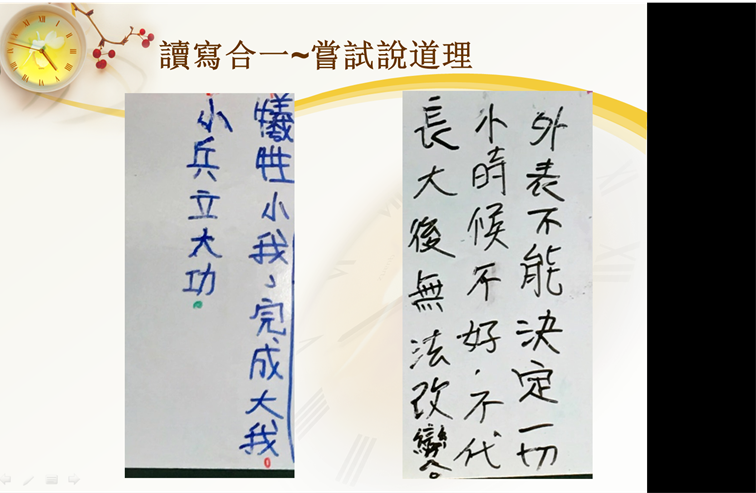 讀寫合一~嘗試說道理
犧牲小我、完成大我
小兵立大功
外表不能決定一切
小時候不好,不代
長大後無法改變。